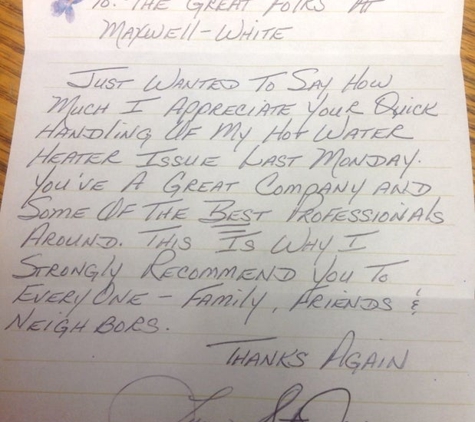 To: The Great Folks At
Maxwell-White
Just Wanted To Say How
Much I Appreciate Your Quick
Handling Of My Hot Water
Heater Issue Last Monday.
You've A Great Company And
Some Of The Best Professionals
Around. This Is Why I
Strongly Recommend You To
Everyone - Family, Friends &
Neighbors.
Thanks Again